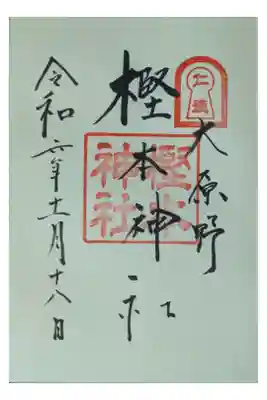 大原野
樫本神社
樫本
神社
令和六年十一月十八日